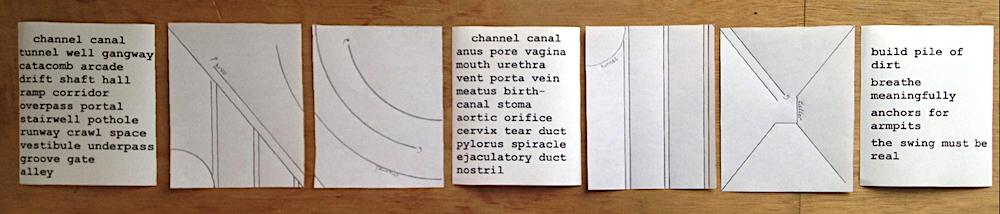 channel canal
tunnel well gangway
catacomb arcade
drift shaft hall
ramp corridor
overpass portal
stairwell pothole
runway crawl space
vestibule underpass
groove gate
alley
channel canal
anus pore vagina
mouth urethra
vent porta vein
meatus birth-
canal stoma
aortic orifice
cervix tear duct
pylorus spiracle
ejaculatory duct
nostril
tunnel
build pile of
dirt
breathe
meaningfully
anchors for
armpits
the swing must be
real